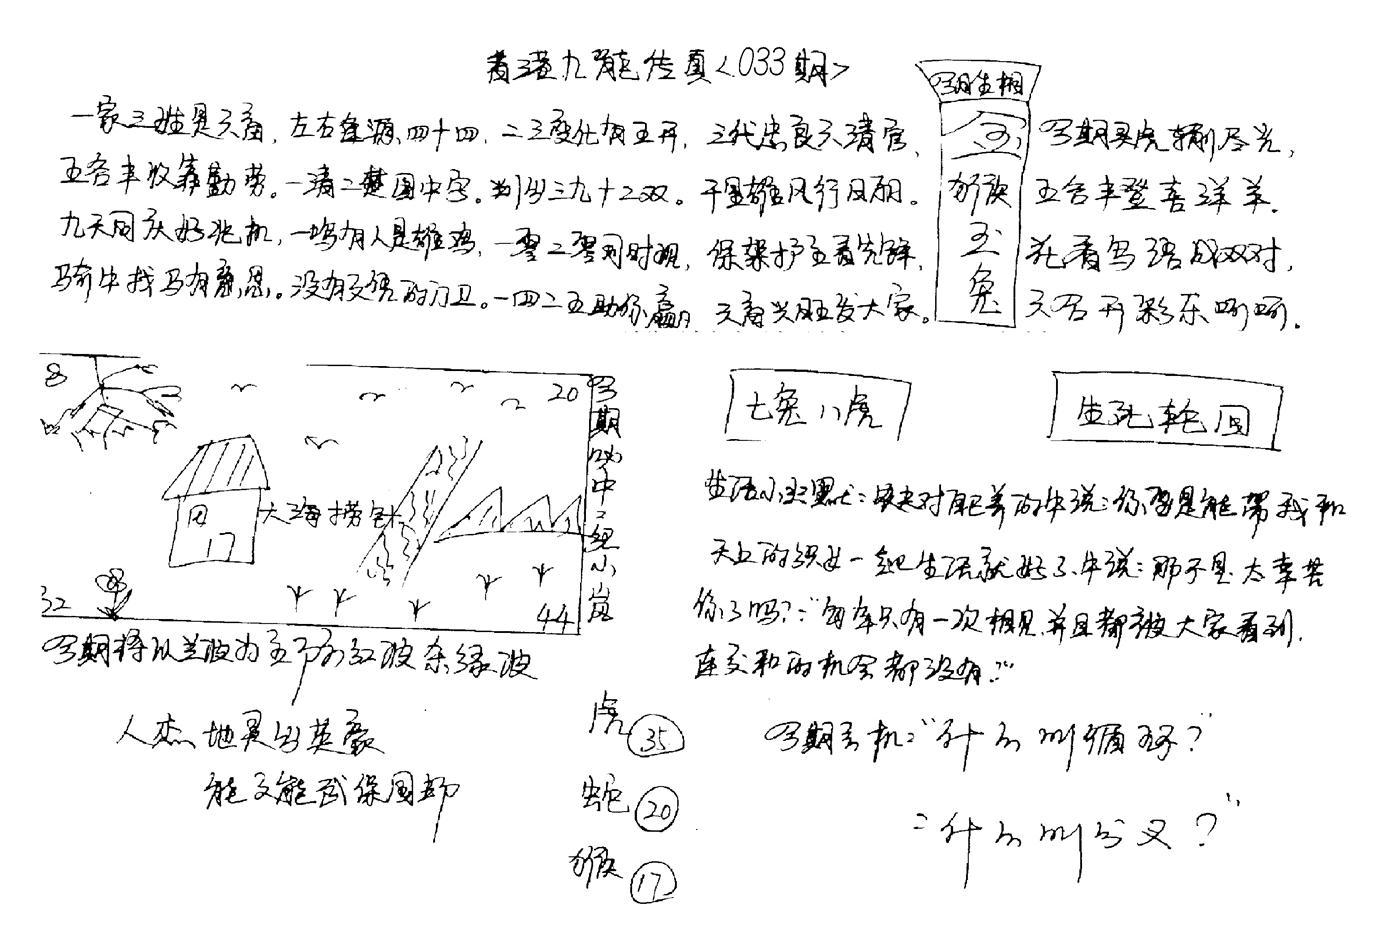 香港九龍传真<033期>
一家三姓是天窗，左右逢源四十四，二三变化有玉开，三代忠良天清官，
五谷丰收靠勤劳。一清二楚图中字。判出三九十二双。千里雄风行风雨。
九天同庆好兆机，一鸣有人是雄鸡，一零二零同时观，保架护主看先锋，
骑牛找马有意思。没有交情的门卫。一四二五助你赢，天窗兴旺发大家。
今期生相
金猴玉兔
今期买虎输尽光，
五谷丰登喜洋羊。
花香鸟语成双对，
天召开彩乐呵呵。
8
20
大海捞针
田
17
32
44
今期必中二组小岚
今期将以兰波为主，防红波杀绿波
人杰地灵出英豪
能文能武保国邦
虎 35
蛇 20
猴 17
七兔八虎
生死轮回
生活小幽默：对牛说：你要是能帮我和
天上的织女一起生活就好了，牛说：那不是太辛苦
你了吗？："每年只有一次相见，并且都被大家看到，
连交和的机会都没有："
今期玄机："什么叫循环？"
："什么叫分叉？"